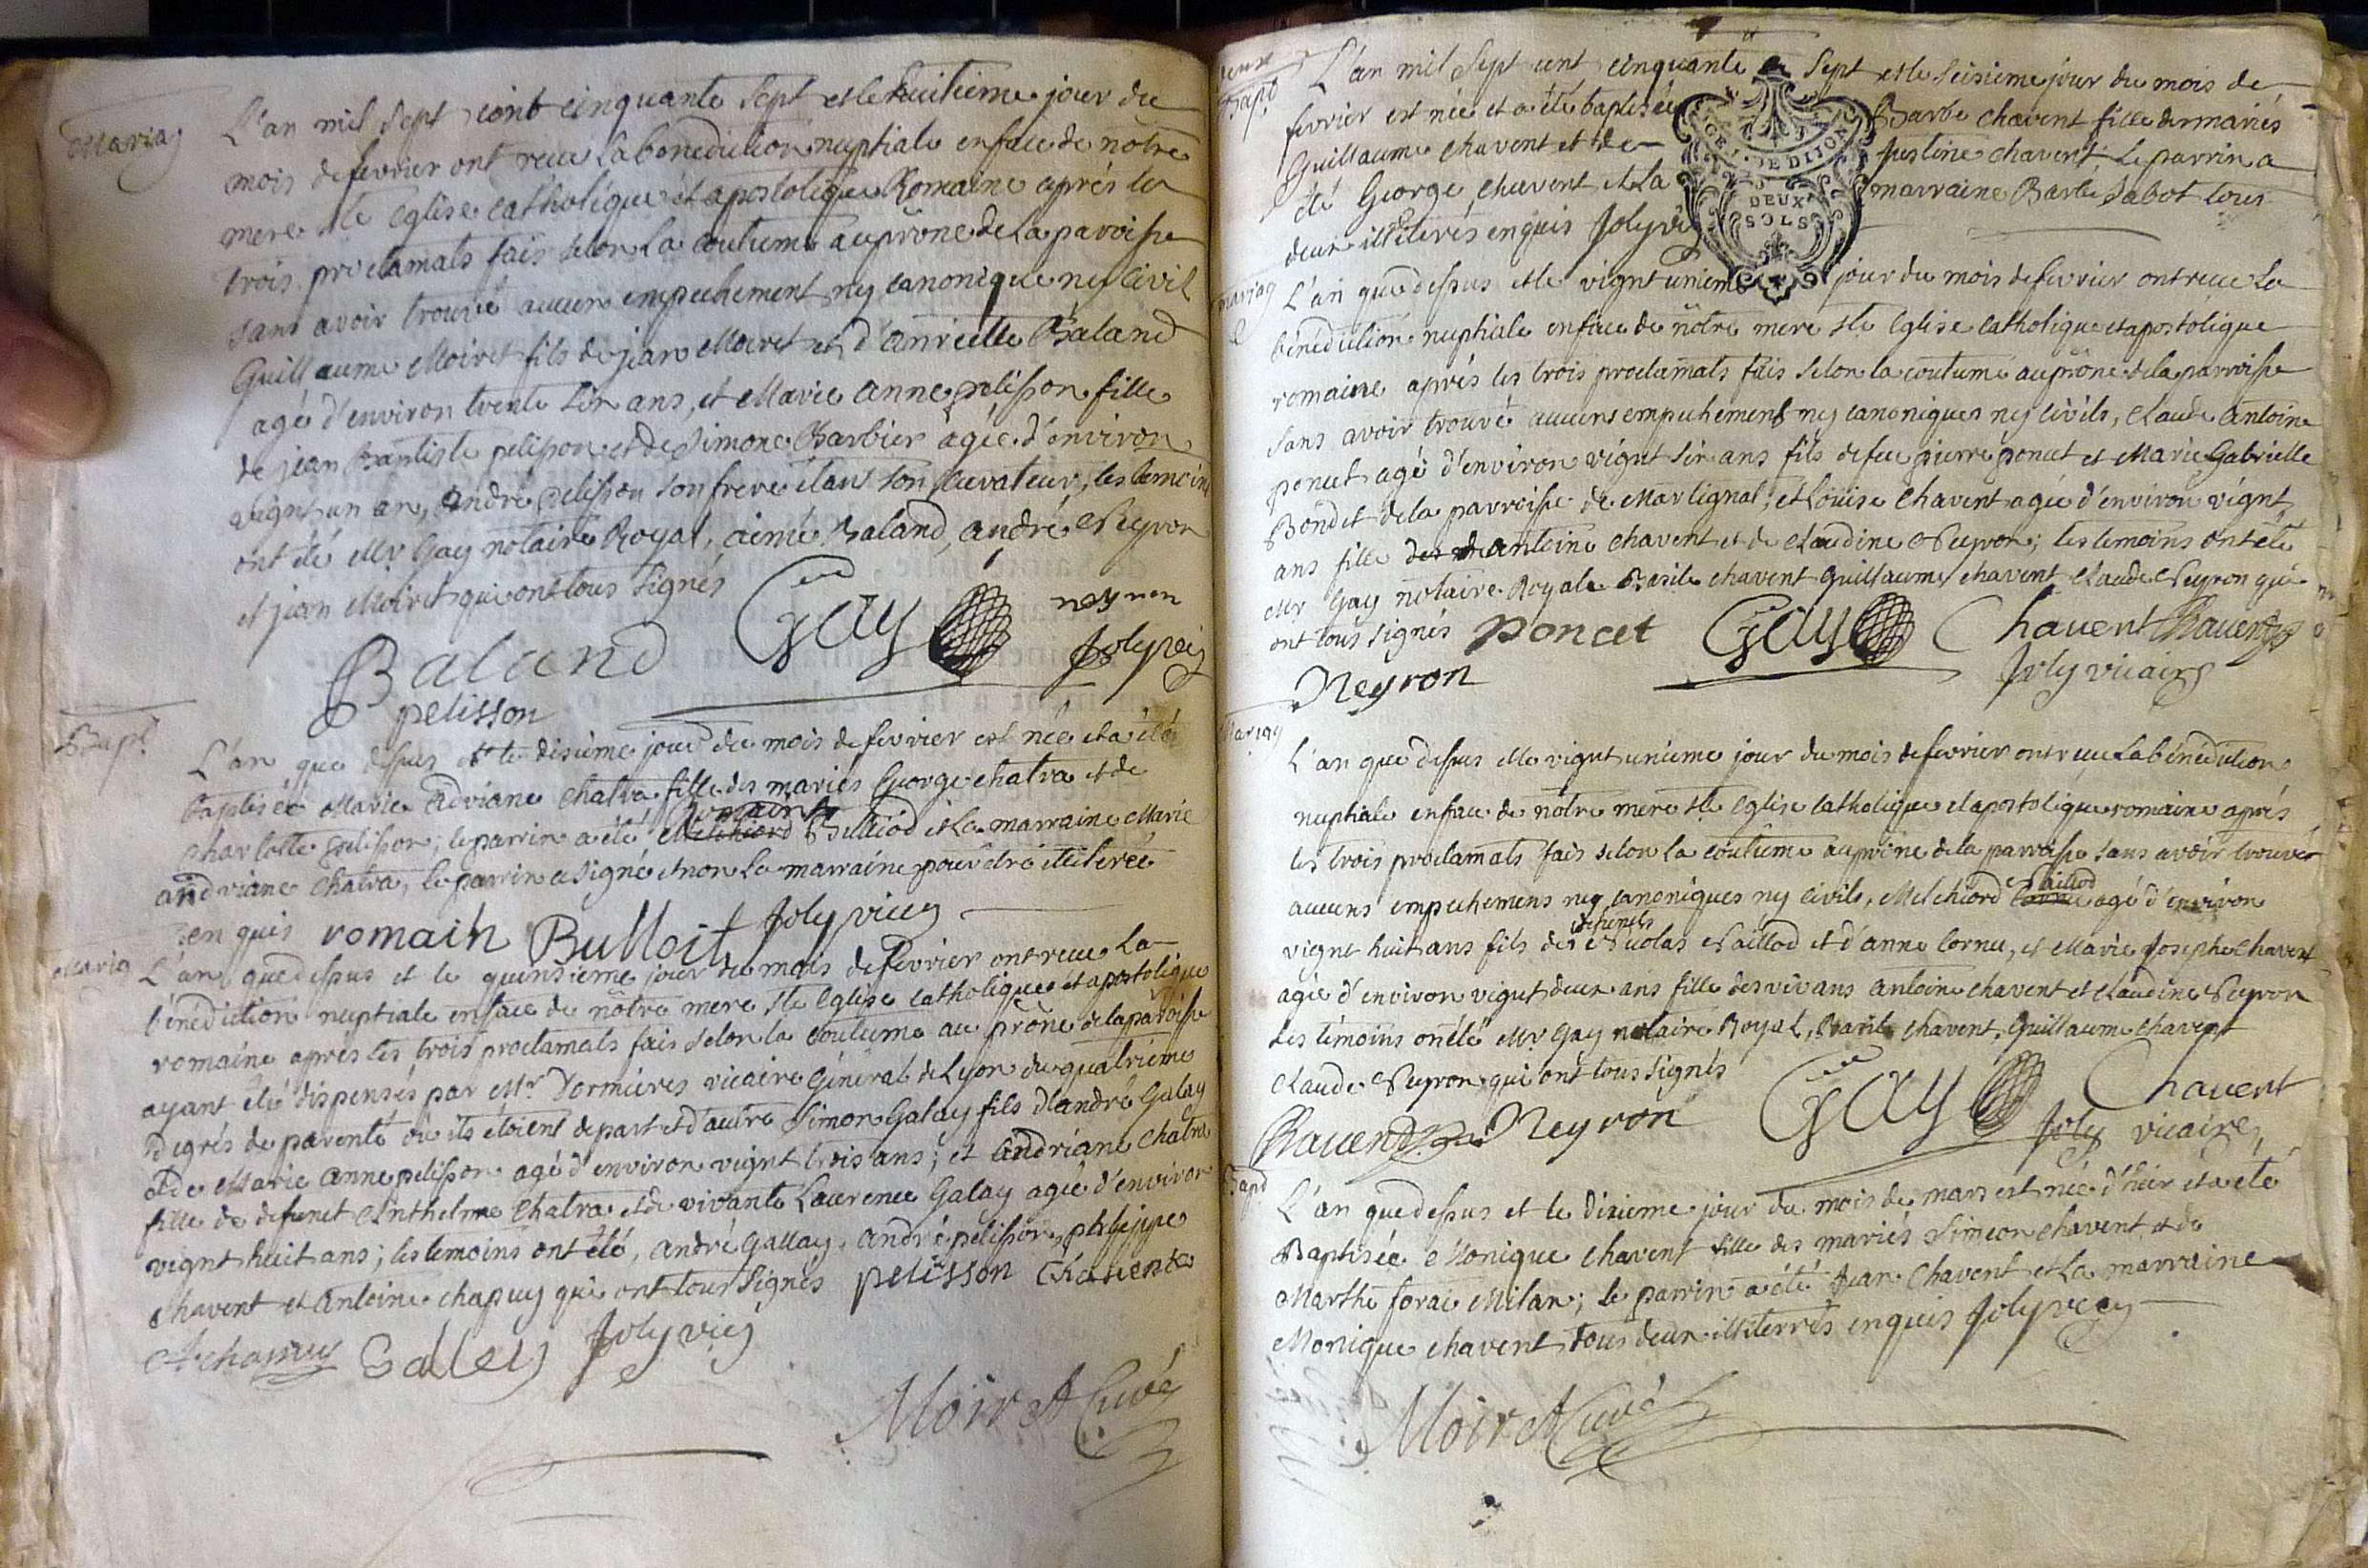 Mariag
L'an mil sept cent cinquante sept et le huitieme jour du
mois de fevrier ont recu la benediction nuptiale en face de nôtre
mere ste Eglise catholique et apostolique Romaine aprés les
trois proclamats fais selon la coutume au prône de la paroisse
sans avoir trouvé aucun empechement ny canonique ny civil
Guillaume Moiret fils de jean Moiret et d'anrielle Baland
agé d'environ trente six ans, et Marie anne pelisson fille
de jean Baptiste pelisson et de Simone Barbier agée d'environ
vignt un an, andré pelisson son frere étant son curateur, les temoins
ont été Mr Gay notaire Royal, aimé Baland, andré Neyron
et jean Moiret qui ont tous signés
Gay neyron
Baland Joly vic
pelisson
Bapt
L'an que dessus et le dixieme jour du mois de fevrier est née et a été
baptisée Marie Adriane chatra fille des mariés George chatra et de
Romain
charlotte pelisson; le parrin a été Melchiord Billiod et la marraine Marie
andriane chatra, le parrin a signé et non la marraine pour etre illiterée
en quis romain Bulloit Joly vic
Mariag
L'an que dessus et le quinsieme jour du mois de fevrier ont recu la
bénédiction nuptiale en face de nôtre mere ste Eglise catholique et apostolique
romaine apres les trois proclamats fais selon la coutume au prône de la paroisse
ayant été dispensés par Mr. Dormieres vicaire Général de Lyon du quatrieme
degrés de parenté où ils étoient de part et d'autre Simon Galay fils d'andré Galay
et de Marie anne pelisson agé d'environ vignt trois ans; et andriane chatra
fille de defunct Anthelme chatra et de vivante Laurence Galay agée d'environ
vignt huit ans; les temoins ont été, andré Gallay, andré pelisson, philippe
chavent et antoine chapuy qui ont tous signés pelisson Chavent
A chapuy Galley Joly vic
Moiret Curé
Bapt
L'an mil sept cent cinquante et sept et le seisieme jour du mois de
fevrier est née et a été baptisée Barbe chavent fille des mariés
GEN. DE DIJON
Guillaume chavent et de justine chavent le parrin a
été George chavent et la marraine Barbe Sabot tous
DEUX
SOLS
deux illiterés enquis Joly vic
mariag
L'an que dessus et le vignt unieme jour du mois de fevrier ont recu la
bénédiction nuptiale en face de nôtre mere ste Eglise catholique et apostolique
romaine aprés les trois proclamats fais selon la coutume au prône de la parroisse
sans avoir trouvé aucuns empechements ny canoniques ny civils, claude antoine
poncet agé d'environ vignt six ans fils de feu pierre poncet et Marie Gabrielle
Bondet de la parroisse de Marlignal, et Loüise chavent agée d'environ vignt
ans fille des d'antoine chavent et de claudine Neyron; les temoins ont été
Mr Gay notaire Royale Basile chavent Guillaume chavent claude Neyron qui
ont tous signés Poncet Gay Chavent Chavent
Neyron Joly vicaire
Mariag
L'an que dessus et le vignt unieme jour du mois de fevrier ont recu la bénédiction
nuptiale en face de nôtre mere ste Eglise catholique et apostolique romaine aprés
les trois proclamats fais selon la coutume au prône de la parroisse sans avoir trouver
Paillod
aucuns empechemens ny canoniques ny civils, Melchiord agé d'environ
defunts
vignt huit ans fils de Nicolas Paillod et d'anne Cornu, et Marie Josephe chavent
agée d'environ vignt deux ans fille des vivans antoine chavent et claudine Neyron
les témoins on été Mr Gay notaire Royal, Basile chavent, Guillaume chavent
claude Neyron qui ont tous signés Gay Chavent
Chavent Neyron Joly vicaire
Bapt
L'an que dessus et le dixieme jour du mois de mars est née d'hier et a été
Baptisée Monique chavent fille des mariés Simeon chavent et de
Marthe forai Milan; le parrin a été Jean Chavent et la marraine
Monique chavent tous deux illiterrés enquis Joly vic
Moiret Curé